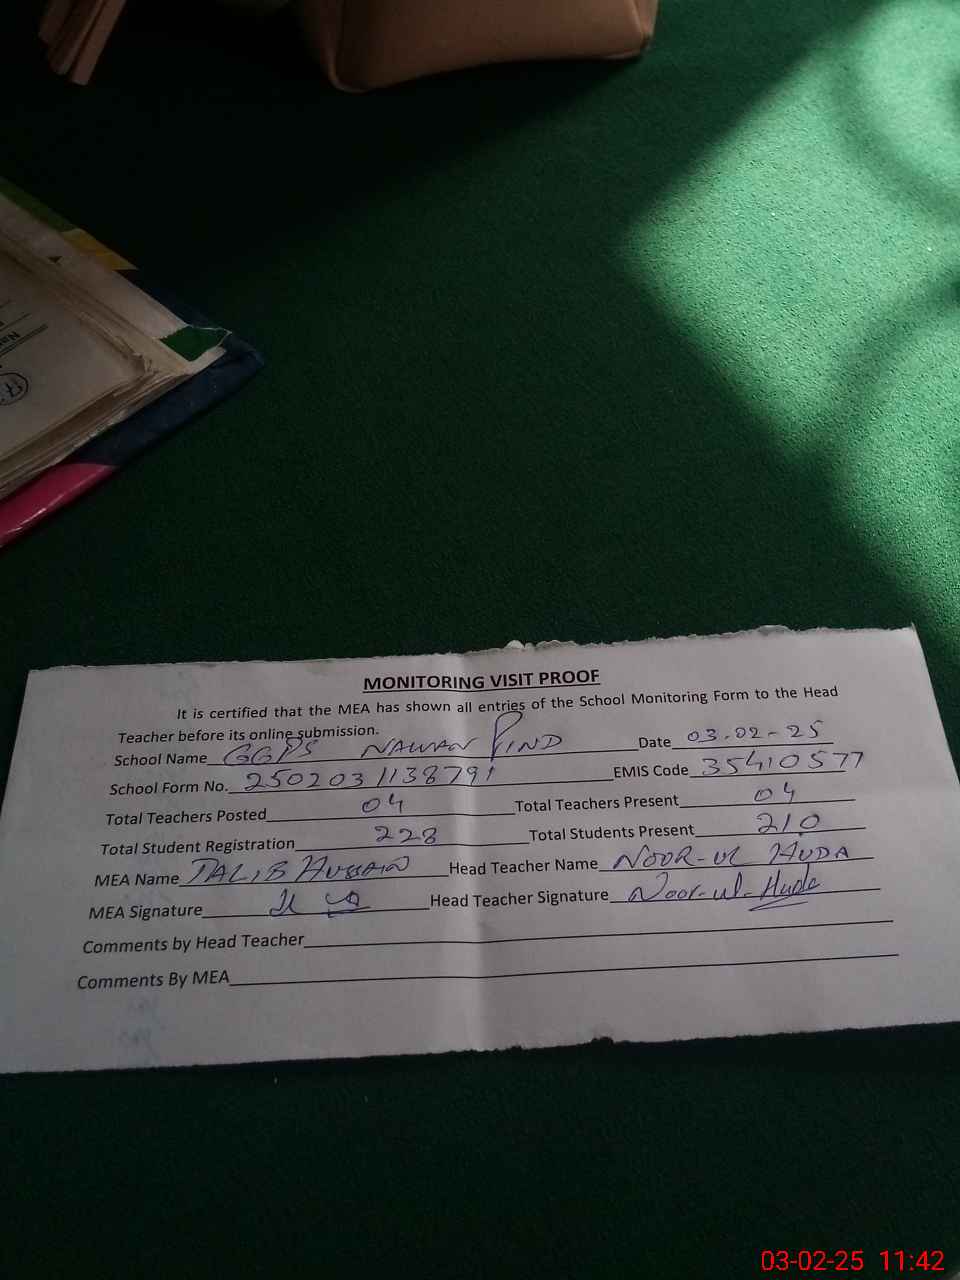 MONITORING VISIT PROOF
It is certified that the MEA has shown all entries of the School Monitoring Form to the Head
Teacher before its online submission.
School Name GGPS NAWAN PIND Date 03-02-25
School Form No. 2502031138791 EMIS Code 35410577
Total Teachers Posted 04 Total Teachers Present 04
Total Student Registration 228 Total Students Present 210
MEA Name TALIB HUSSAIN Head Teacher Name NOOR-UL HUDA
MEA Signature Head Teacher Signature Noor-ul-Huda
Comments by Head Teacher
Comments By MEA
17
03-02-25 11:42